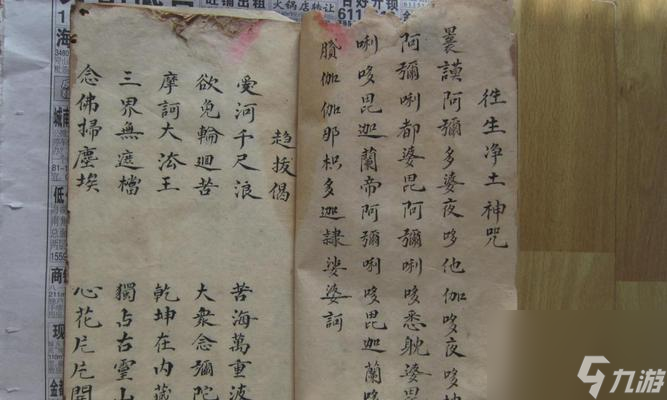 往生净土神咒
曩謨阿彌多婆夜哆他伽哆夜哆
阿彌唎都婆毘阿彌唎哆悉耽婆毘
唎哆毘迦蘭帝阿彌唎哆毘迦蘭哆
膹伽伽那枳多迦隷娑婆訶
趋拔偈
愛河千尺浪 苦海萬重波
欲免輪迴苦 大衆念彌陀
摩訶大法王 乾坤在内藏
三界無遮檔 獨占古靈山
念佛掃塵埃 心花片片開
旺铺出租
火锅店转让
611
海
城南
低
商
现
金
九游